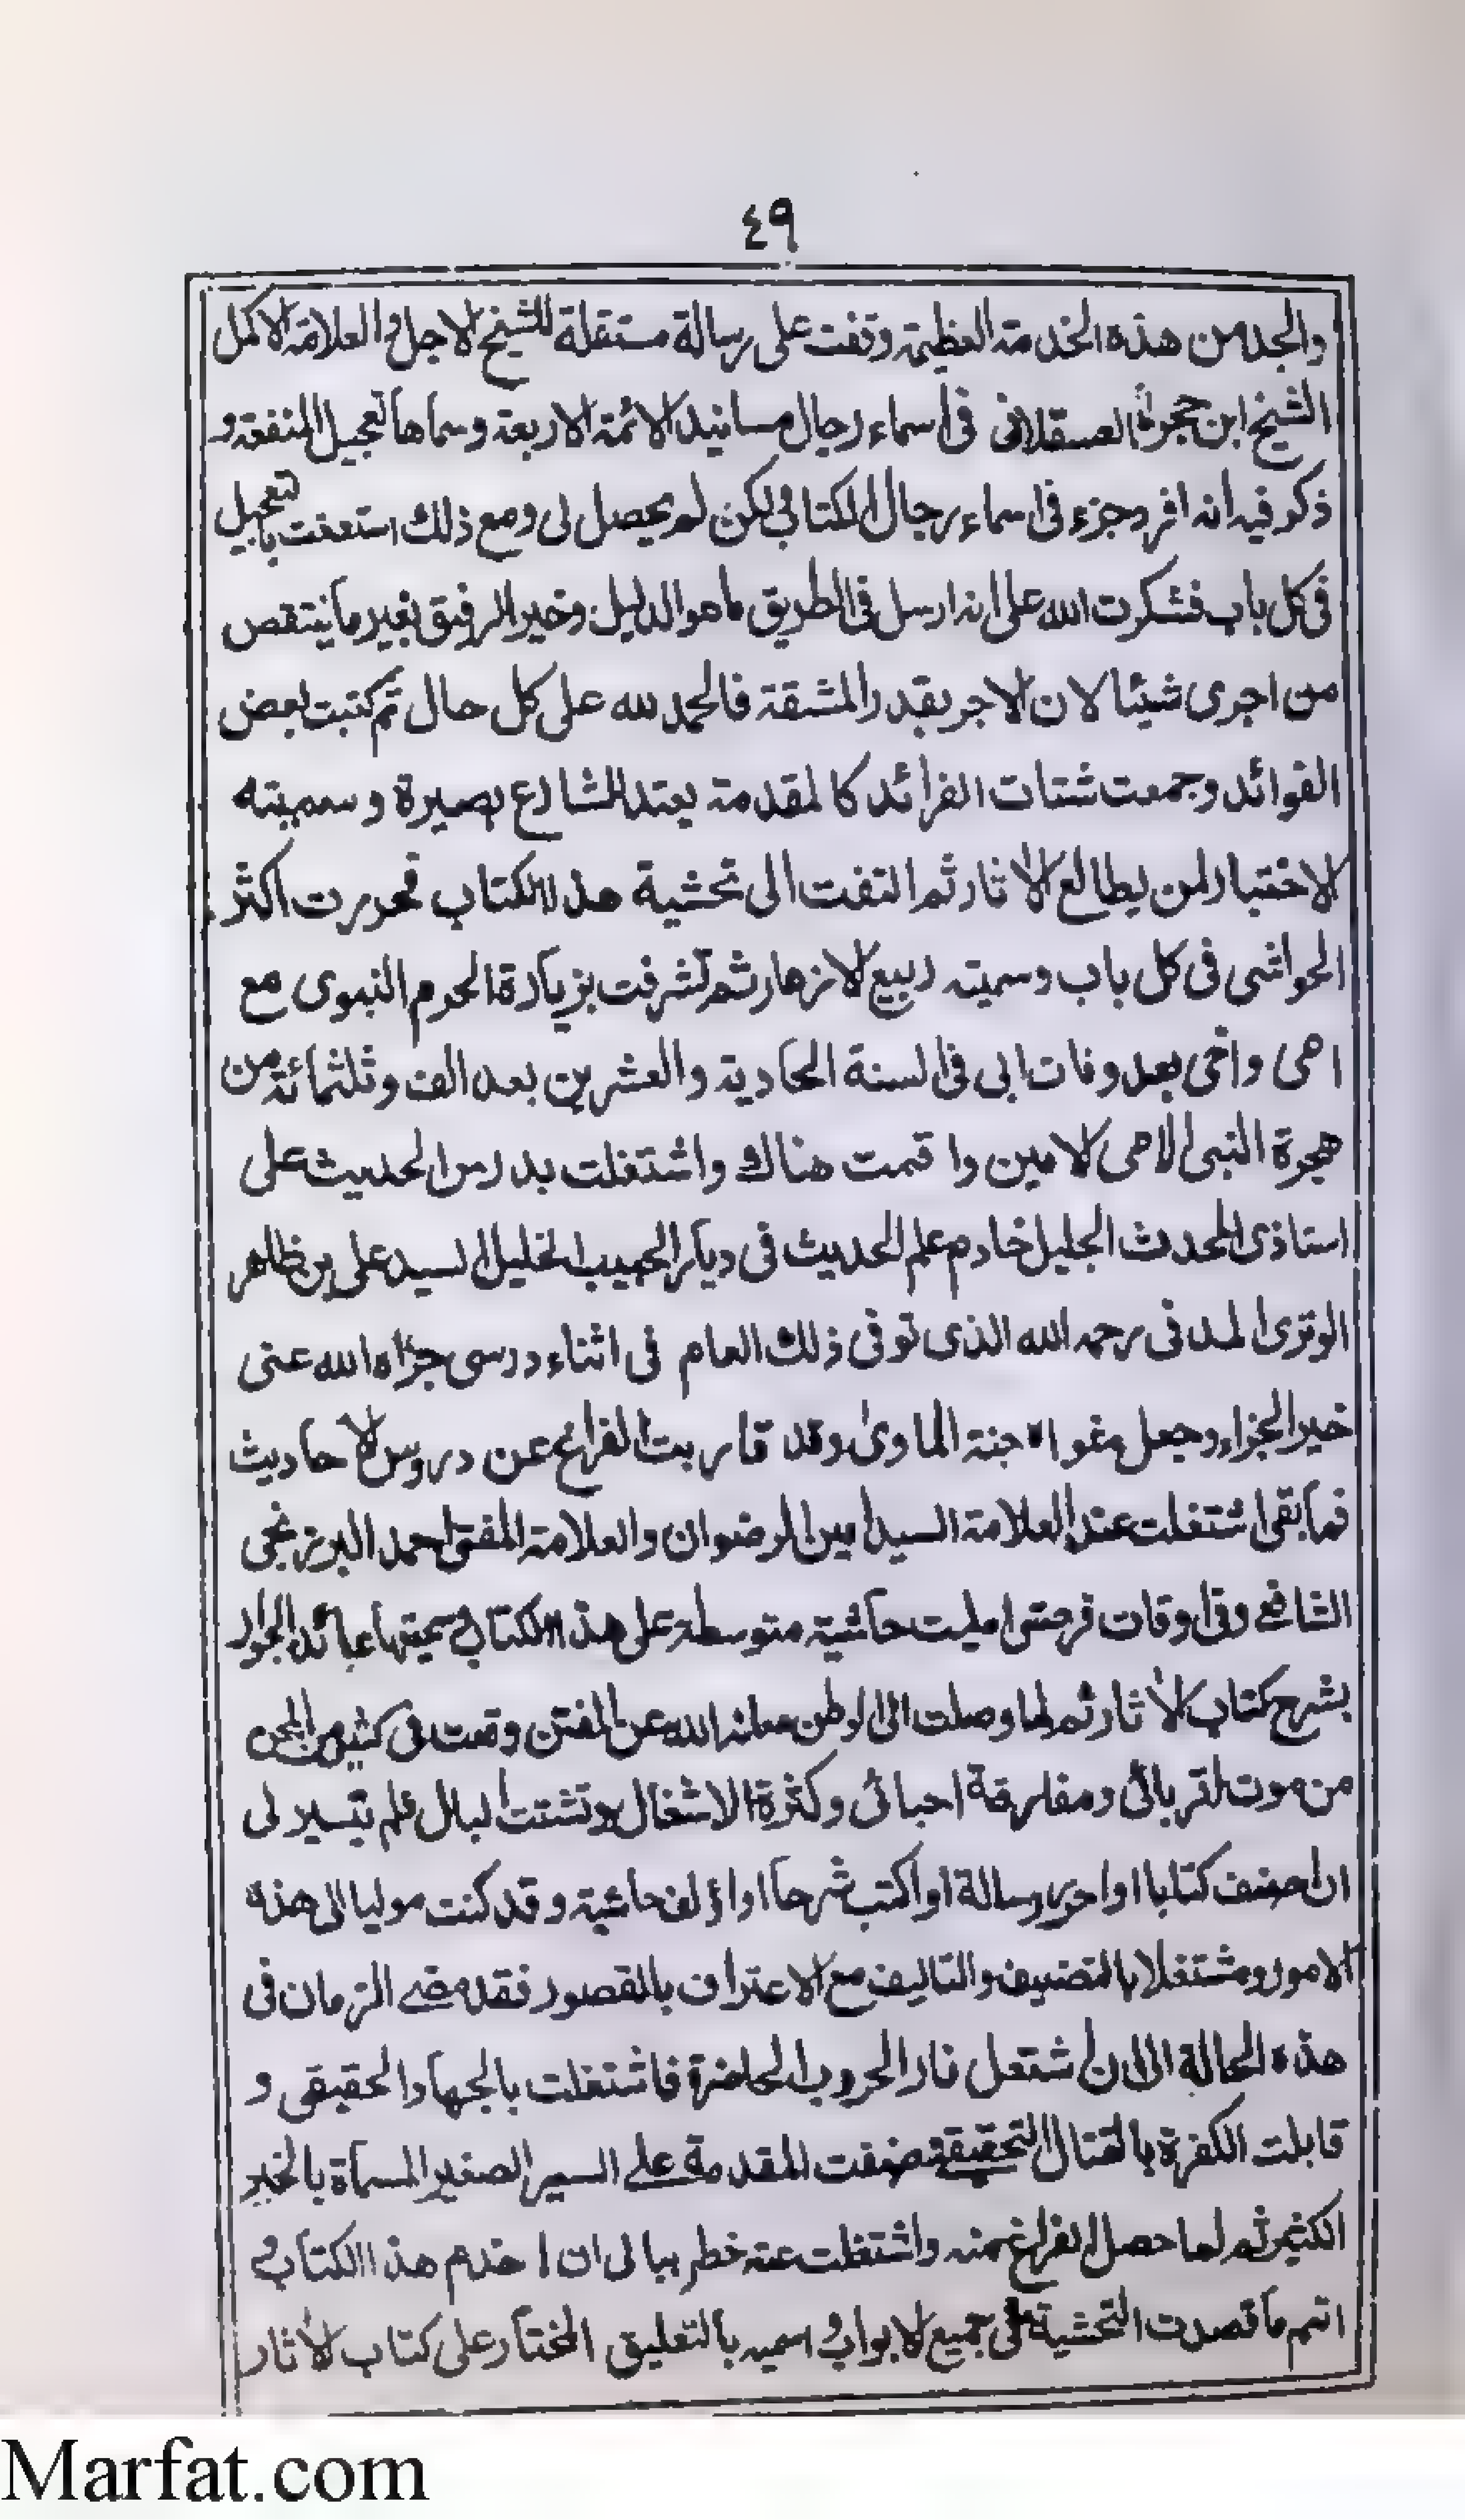 ٤٩
والجد من هذه الخدمة العظيمة وقفت على رسالة مستقلة للشيخ الاجل والعلامة الاكمل
الشيخ ابن حجر العسقلانى فى اسماء رجال مسانيد الائمة الاربعة وسماها تعجيل المنفعة و
ذكر فيه انه افرد جزء فى اسماء رجال الكتاب لكن لم يحصل لى ومع ذلك استعنت بالتعجيل
فى كل باب فشكرت الله على انه ارسل فى الطريق ما هو الدليل وخير الرفيق بغير ما ينتقص
من اجرى شيئا لان الاجر بقدر المشقة فالحمد لله على كل حال ثم كتبت بعض
الفوائد وجمعت شتات الفرائد كالمقدمة يعتد للشارع بصيرة وسميته
الاختيار لمن يطالع الاثار ثم التفت الى تحشية هذا الكتاب تحررت اكثر
الحواشى فى كل باب وسميته ربيع الازهار ثم تشرفت بزيارة الحرم النبوى مع
امى واخى بعد وفات ابى فى السنة الحادية والعشرين بعد الف وثلثمائة من
هجرة النبى الامى الامين واقمت هناك واشتغلت بدرس الحديث على
استاذى المحدث الجليل خادم علم الحديث فى ديار الحبيب الخليل السيد على بن ظاهر
الوترى المدنى رحمه الله الذى توفى ذلك العام فى اثناء درسى جزاه الله عنى
خير الجزاء وجعل مثواه جنة الماوى وقد قاربت الفراغ عن دروس الاحاديث
فما بقى اشتغلت عند العلامة السيد امين الرضوان والعلامة المفتى احمد البرزنجى
الشافعى وفى اوقات فرصتى امليت حاشية متوسطة على هذا الكتاب وسميتها عبائد الجوار
بشرح كتاب الاثار ثم لما وصلت الى الوطن صانه الله عن الفتن وقعت فى كثير من المحن
من موت اقربائى ومفارقة احبائى وكثرة الاشغال وتشتت البال فلم يتيسر لى
ان اصنف كتابا او احرر رسالة او اكتب شرحا او اؤلف حاشية وقد كنت موليا الى هذه
الامور ومشتغلا بالتصنيف والتاليف مع الاعتراف بالقصور فقد مضى الزمان فى
هذه الحالة الى ان اشتعل نار الحروب الحاضرة فاشتغلت بالجهاد الحقيقى و
قابلت الكفرة بالقتال التحقيقى فصنفت المقدمة على السير الصغير المسماة بالخير
الكثير ثم لما حصل الفراغ منه واشتغلت عنه خطر ببالى ان اخدم هذا الكتاب و
اتم ما قصدت التحشية على جميع الابواب و اسميه بالتعليق المختار على كتاب الاثار
Marfat.com